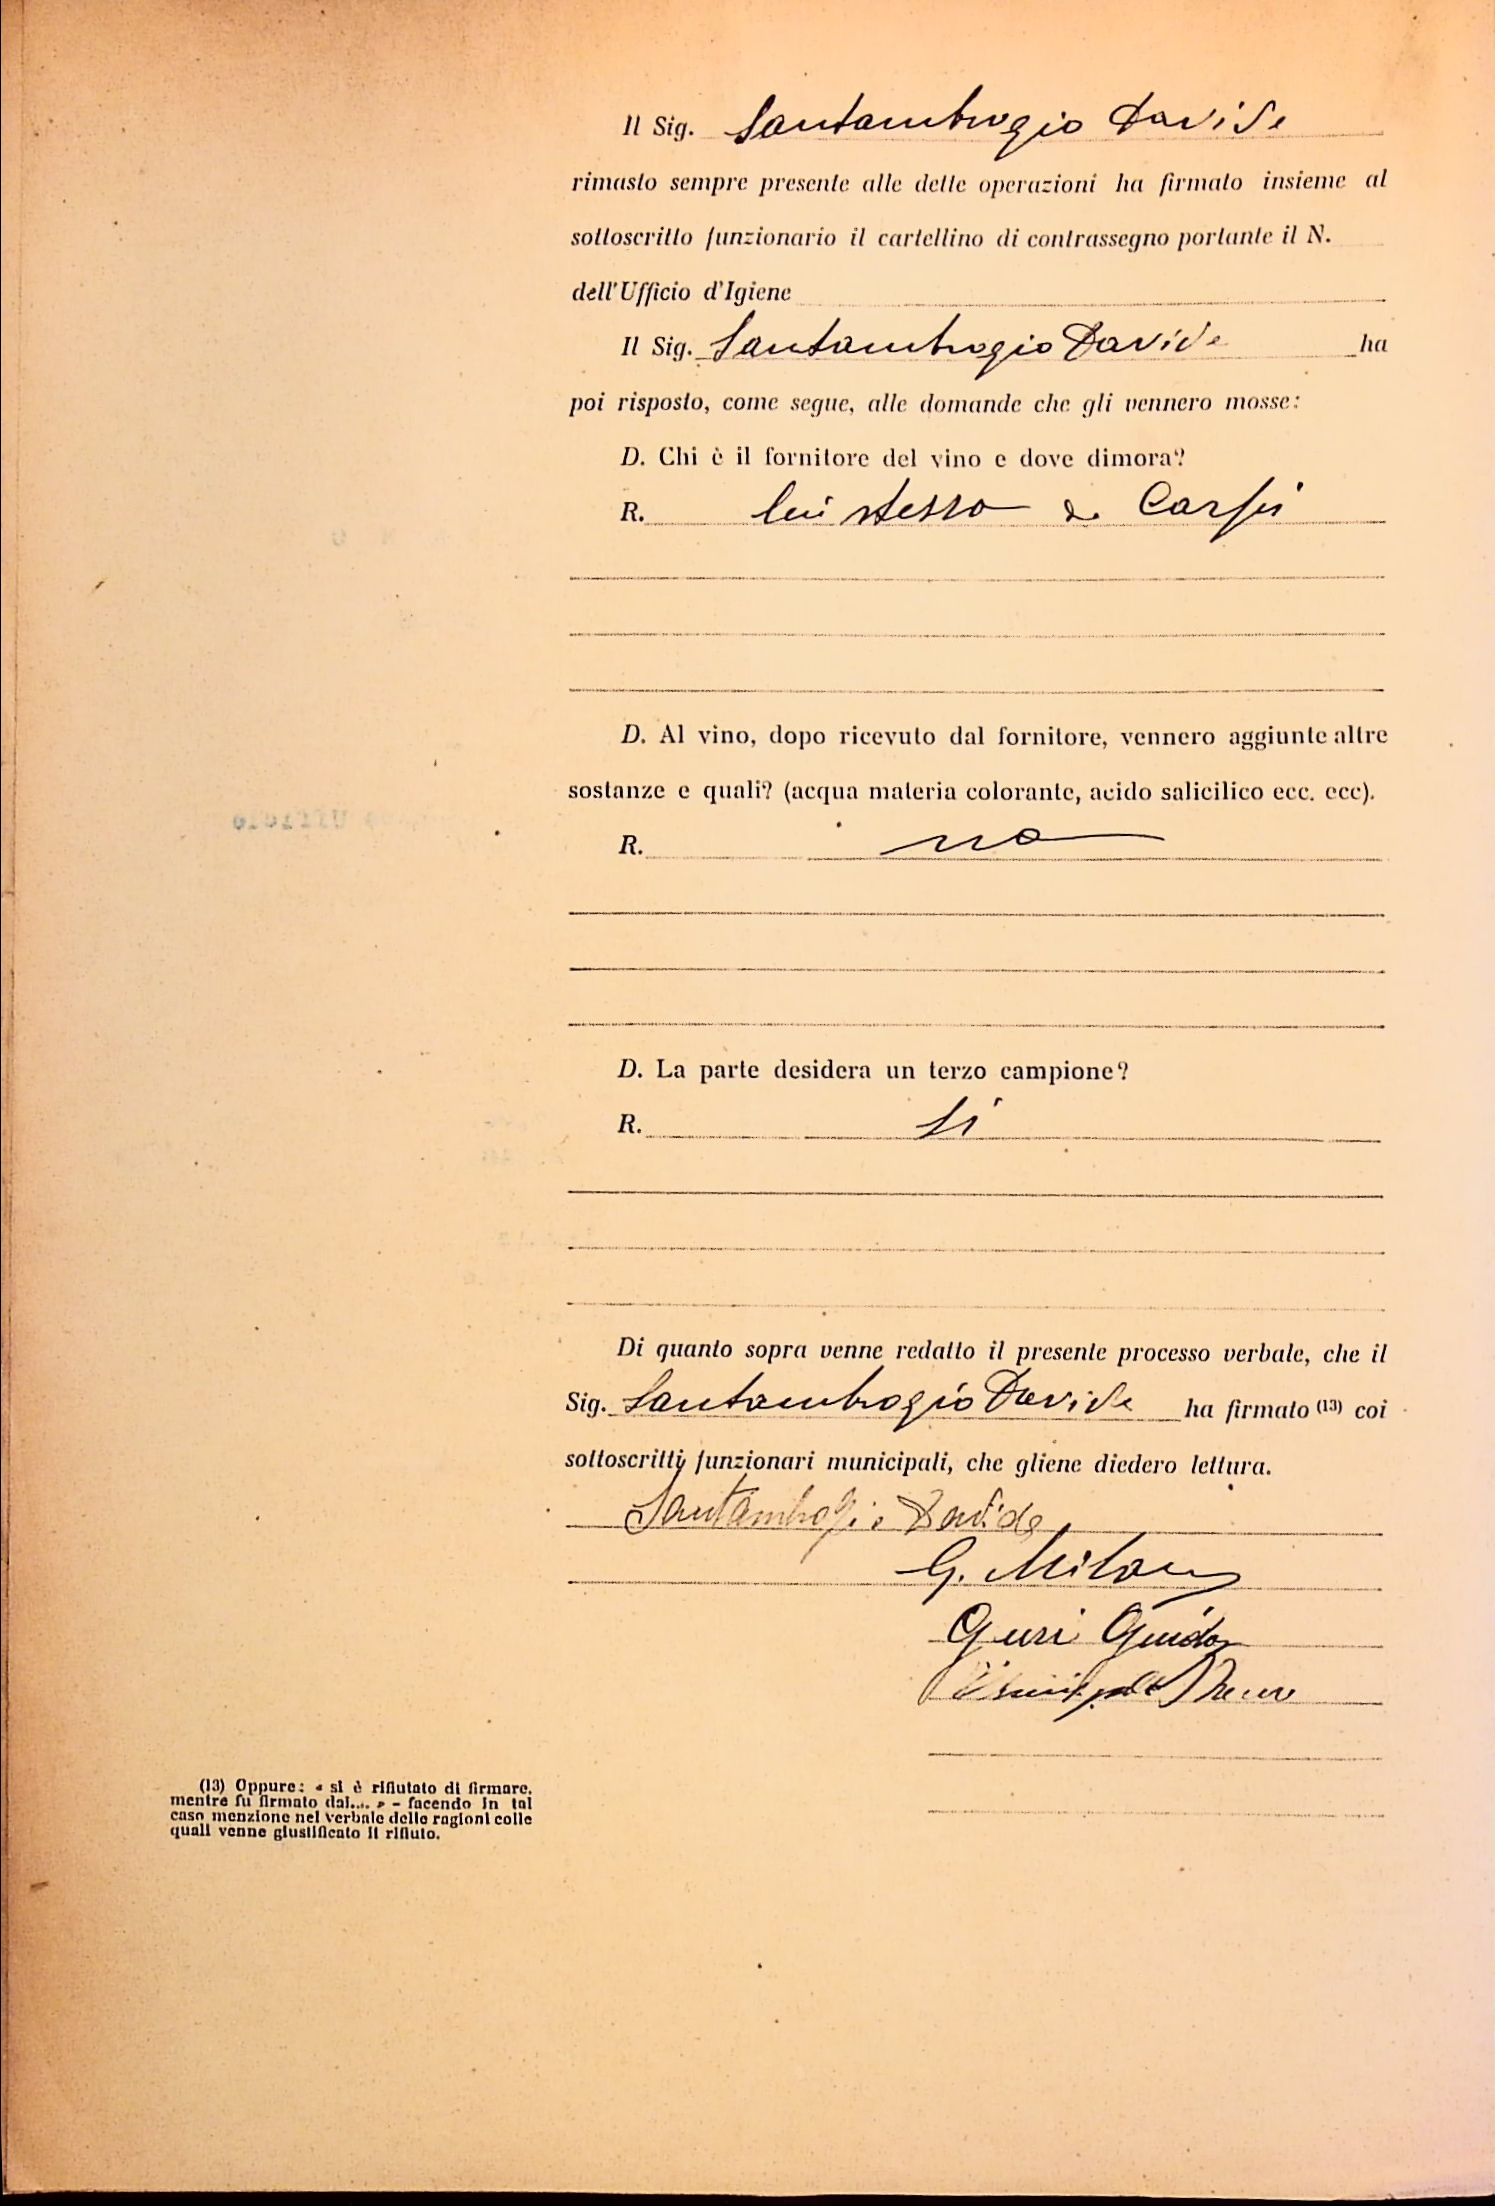 Il Sig. Santambrogio Davide
rimasto sempre presente alle dette operazioni ha firmato insieme al
sottoscritto funzionario il cartellino di contrassegno portante il N.
dell'Ufficio d'Igiene
Il Sig. Santambrogio Davide ha
poi risposto, come segue, alle domande che gli vennero mosse:
D. Chi è il fornitore del vino e dove dimora?
R. lui stesso da Carpi
D. Al vino, dopo ricevuto dal fornitore, vennero aggiunte altre
sostanze e quali? (acqua materia colorante, acido salicilico ecc. ecc).
R. no
D. La parte desidera un terzo campione?
R. si
Di quanto sopra venne redatto il presente processo verbale, che il
Sig. Santambrogio Davide ha firmato (13) coi
sottoscritti funzionari municipali, che gliene diedero lettura.
Santambrogio Davide
G. Milani
Guri Guido
(13) Oppure: « si è rifiutato di firmare,
mentre fu firmato dal.... » – facendo in tal
caso menzione nel verbale delle ragioni colle
quali venne giustificato il rifiuto.